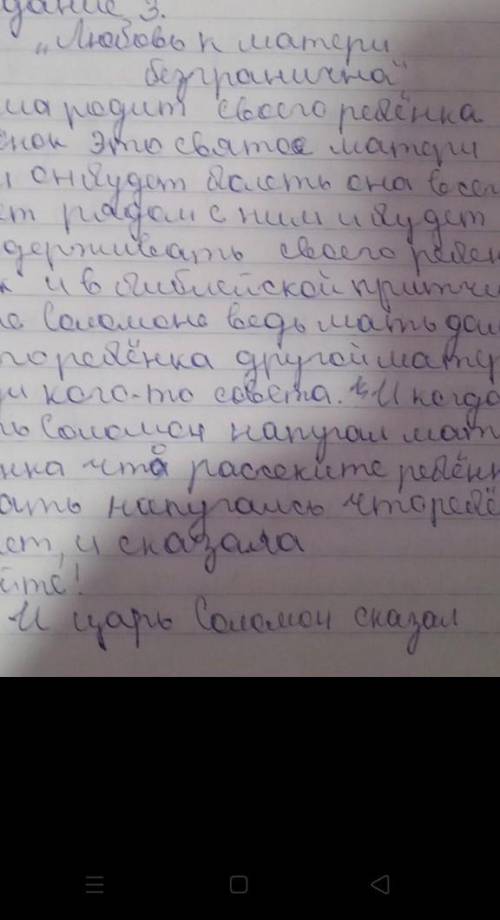 дание 3.
„Любовь к матери
безгранична"
ма родит своего ребёнка
ёнок это святое матери
и он будет болеть она всег
ет рядом с ним и будет
держивать своего ребён
к и в библейской притчи
ло Соломоне ведь мать дал
го ребёнка другой матер
ри кого-то совета. И когда
рь Соломон напугал мат
нка что рассеките ребёнк
ать напугалсь что ребё
ет, и сказала
йте!
И царь Соломон сказал